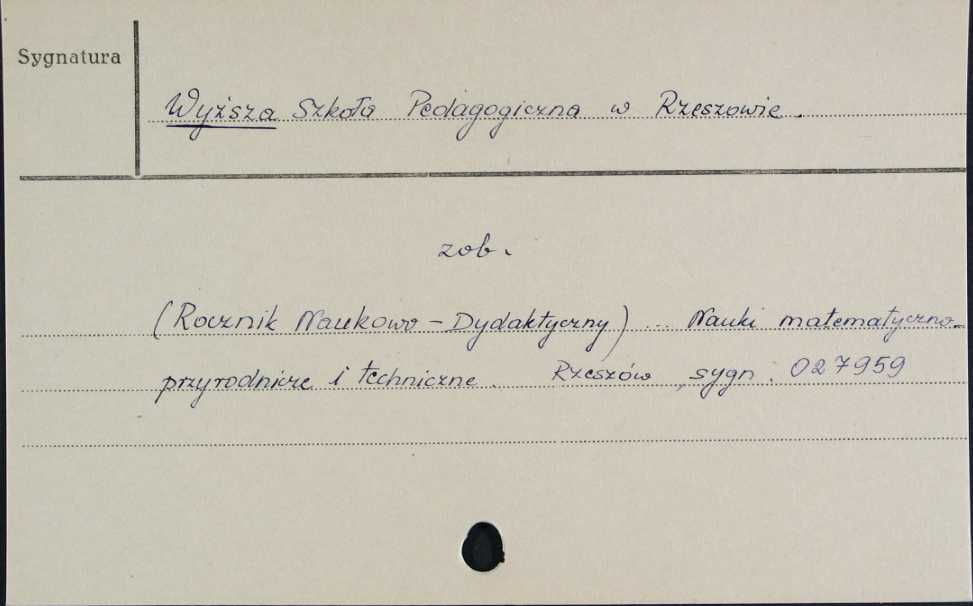 Sygnatura
Wyższa Szkoła Pedagogiczna w Rzeszowie.
zob.
(Rocznik Naukowo-Dydaktyczny) .. Nauki matematyczno-
przyrodnicze i techniczne. Rzeszów, sygn. 027959